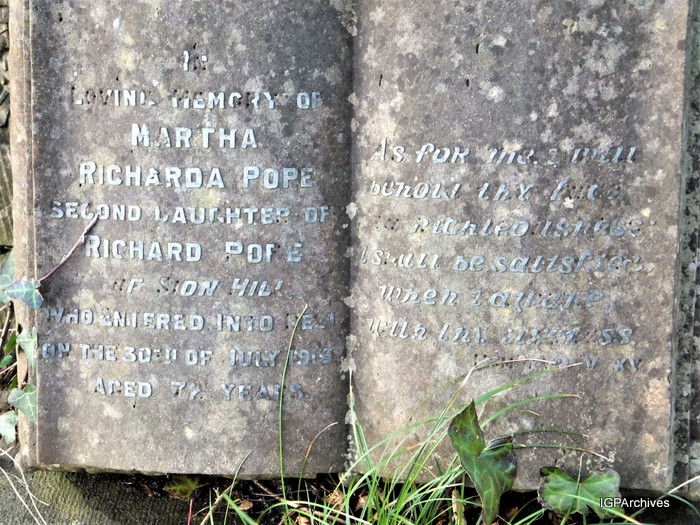 IN
LOVING MEMORY OF
MARTHA
RICHARDA POPE
SECOND DAUGHTER OF
RICHARD POPE
OF SION HILL
WHO ENTERED INTO REST
ON THE 30TH OF JULY
AGED YEARS.
As for me, I will
behold thy face
in righteousness
I shall be satisfied
when I awake
with thy likeness.
XV
IGPArchives